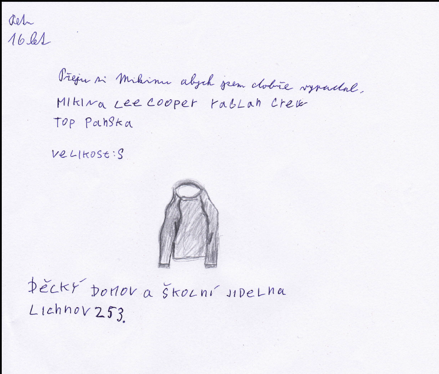 Petr
16 let
Přeju si Mikinu abych jsem dobře vypadal.
MIKINA LEE COOPER RaGLAN CREW
TOP PaNSKa
VELIKOST:S
DĚCKÝ DOMOV a ŠKOLNÍ JIDELNa
LICHNOV 253.